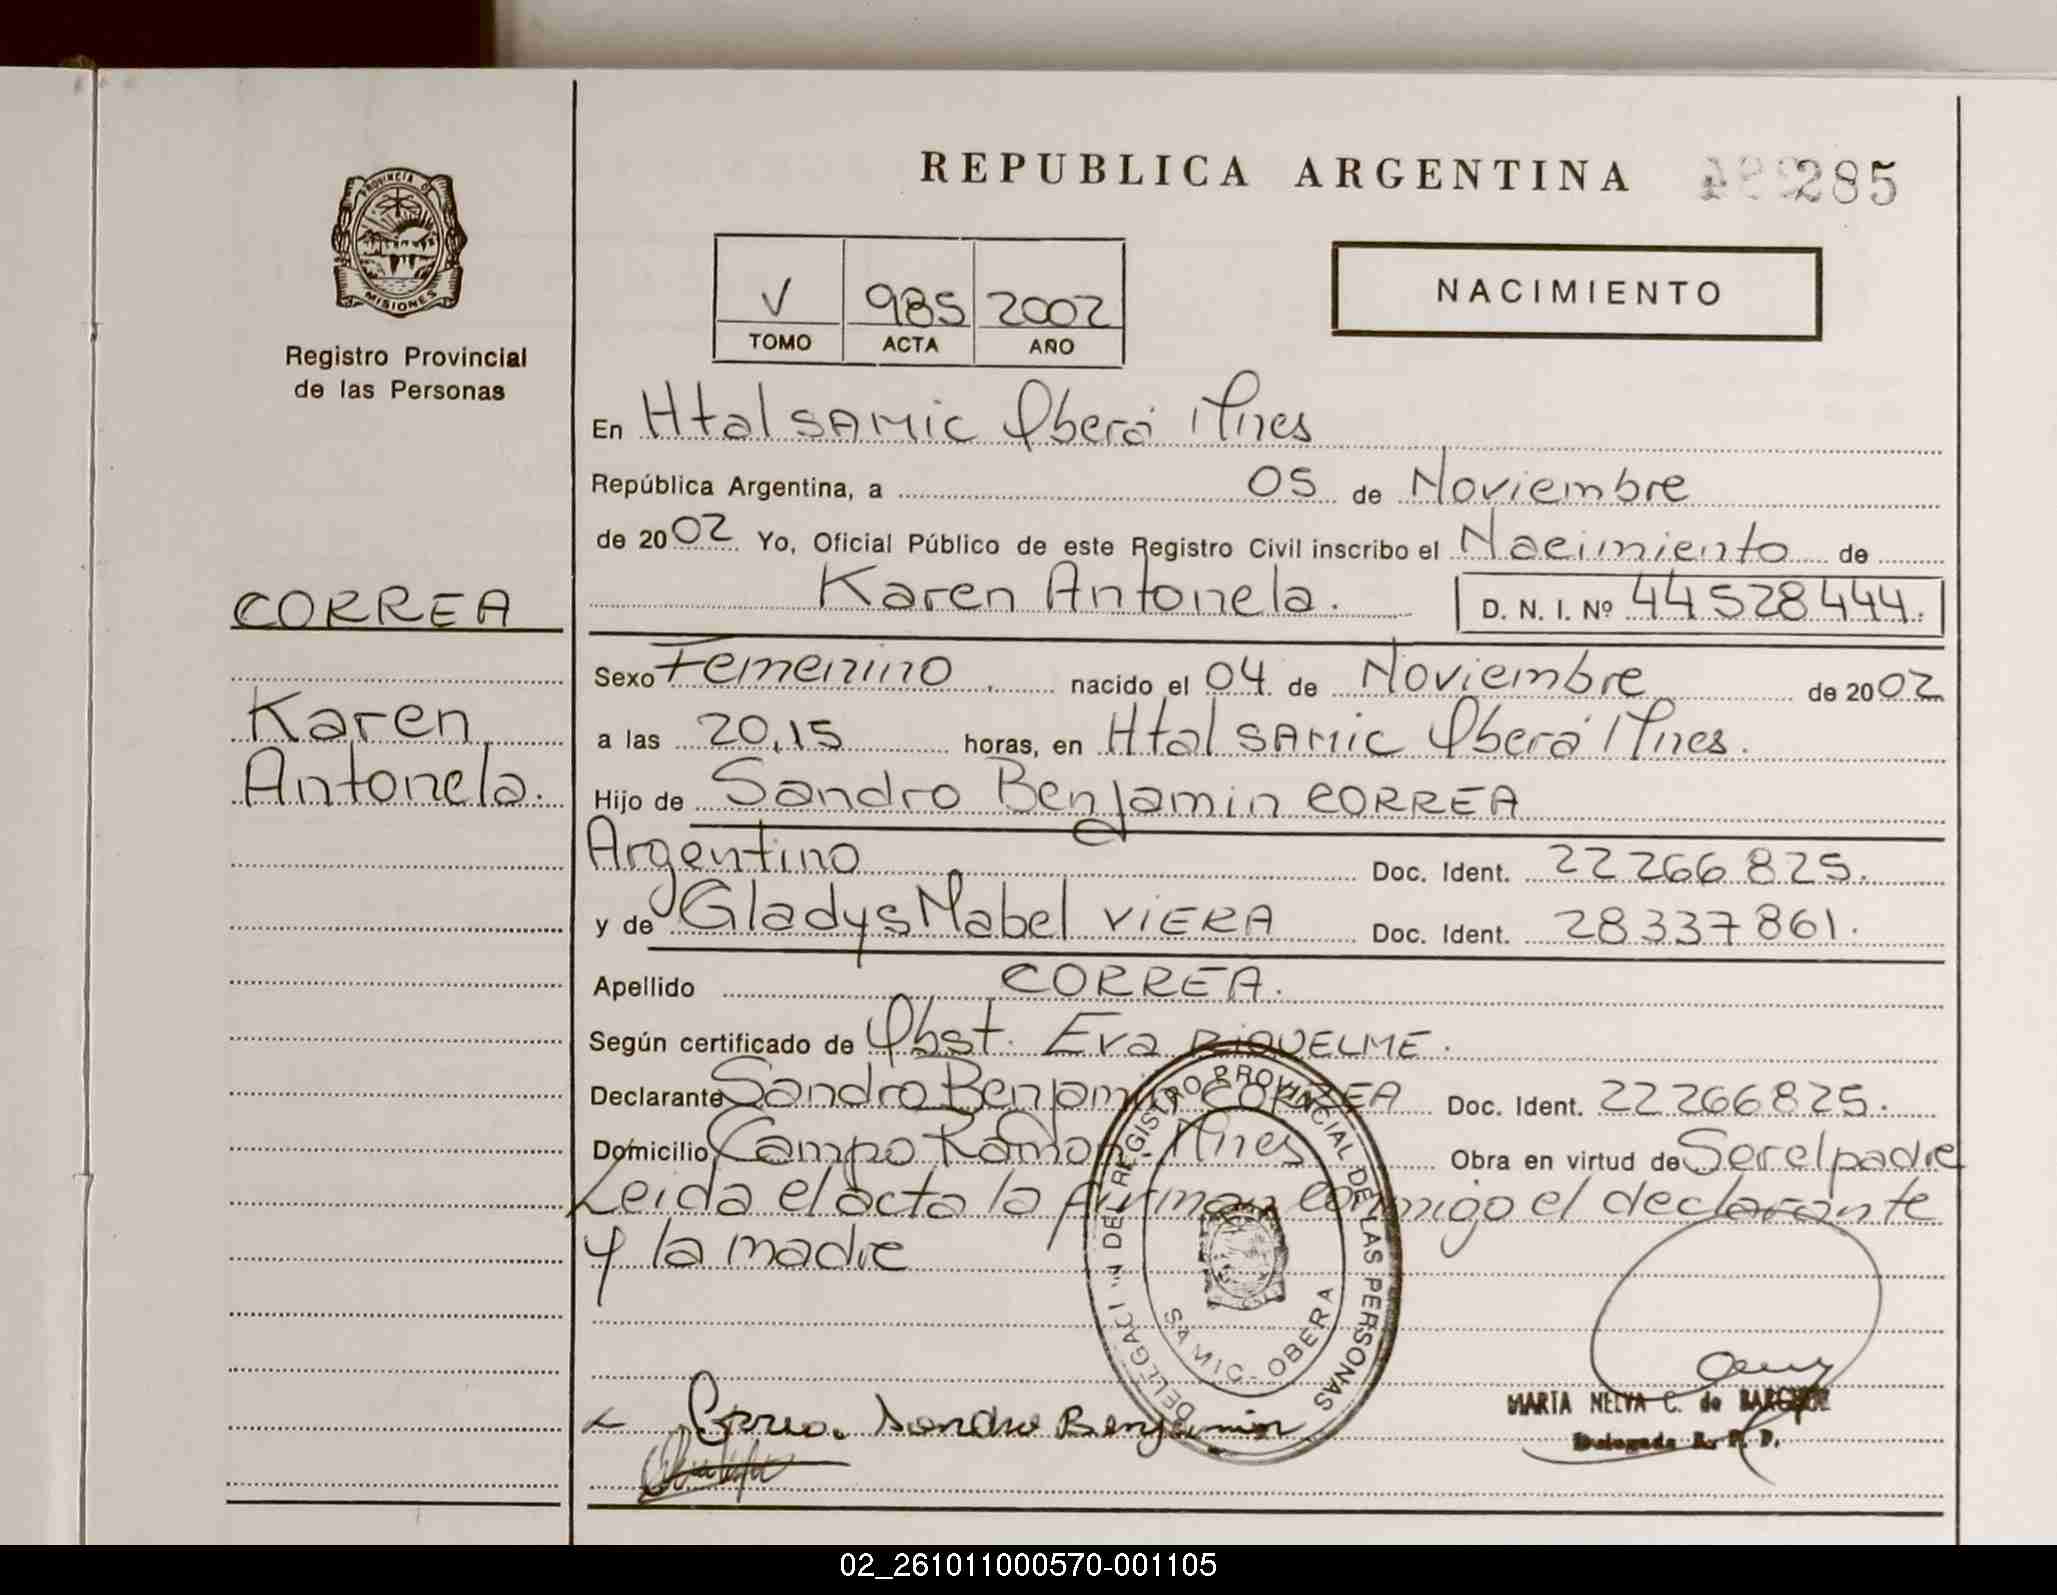 REPUBLICA ARGENTINA 285
PROVINCIA DE
MISIONES
Registro Provincial
de las Personas
NACIMIENTO
V 985 2002
TOMO ACTA AÑO
En Htal SAMIC Oberá Mnes
República Argentina, a 05 de Noviembre
de 2002 Yo, Oficial Público de este Registro Civil inscribo el Nacimiento de
Karen Antonela. D. N. I. Nº 44528444.
CORREA
Karen
Antonela.
Sexo Femenino nacido el 04 de Noviembre de 2002
a las 20,15 horas, en Htal SAMIC Oberá Mnes.
Hijo de Sandro Benjamin CORREA
Argentino Doc. Ident. 22266825.
y de Gladys Mabel VIERA Doc. Ident. 28337861.
Apellido CORREA.
Según certificado de Obst. Eva RIQUELME.
Declarante Sandro Benjamin CORREA Doc. Ident. 22266825.
Domicilio Campo Ramon. Mnes Obra en virtud de Ser el padre
Leida el acta la firman conmigo el declarante
y la madre
DELEGACI N DEL REGISTRO PROVINCIAL DE LAS PERSONAS
SAMIC - OBERA
Correa. Sandro Benjamin
MARIA NELVA C. de
Delegada R. P. P.
02_261011000570-001105